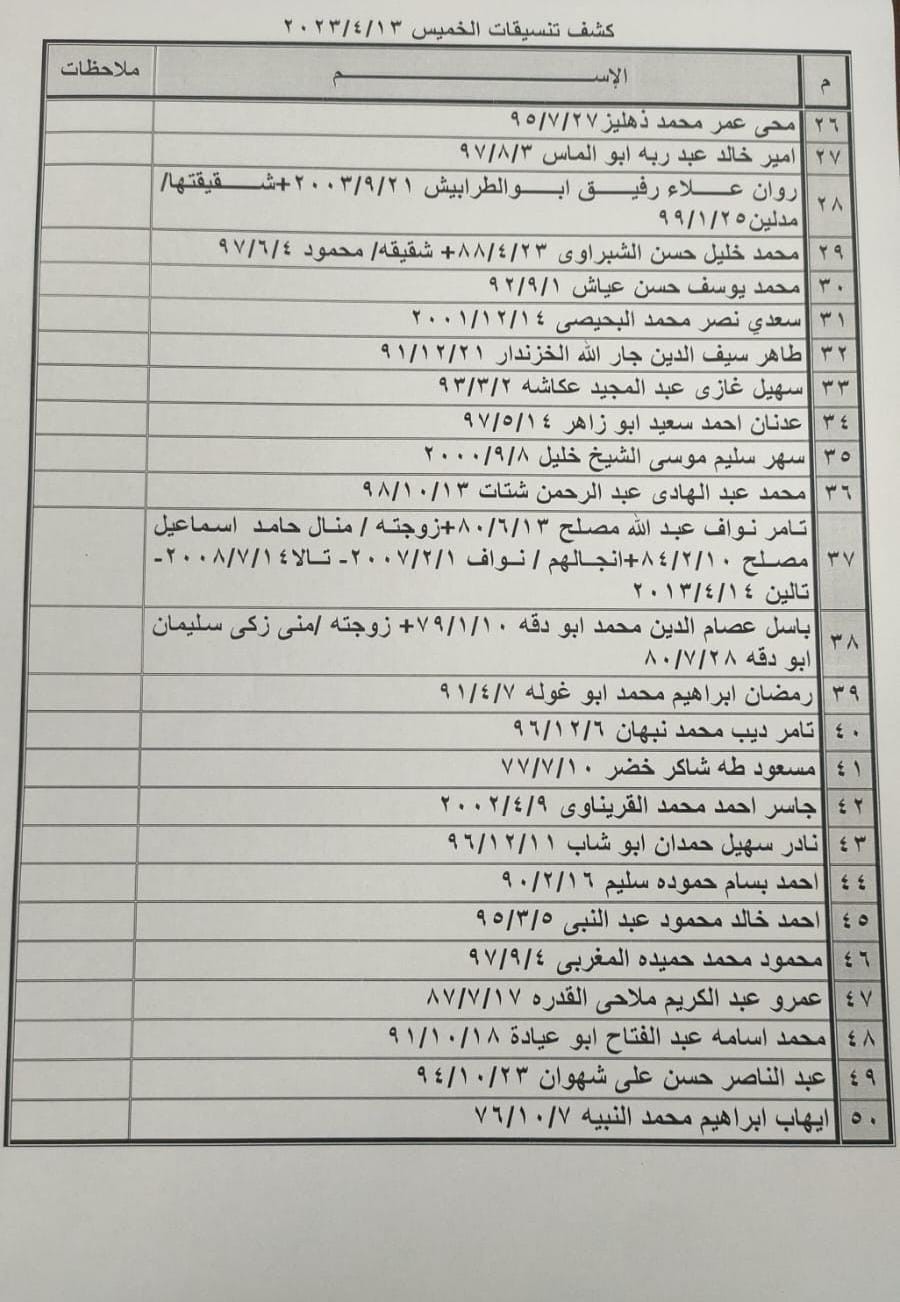 كشف تنسيقات الخميس ٢٠٢٣/٤/١٣
م الإســــم ملاحظات
٢٦ محى عمر محمد ذهليز ٩٥/٧/٢٧
٢٧ امير خالد عبد ربه ابو الماس ٩٧/٨/٣
٢٨ روان عـــلاء رفيـــق ابـــوالطرابيش ٢٠٠٣/٩/٢١+شـــقيقتها/
مدلين٩٩/١/٢٥
٢٩ محمد خليل حسن الشبراوى ٨٨/٤/٢٣+ شقيقه/ محمود ٩٧/٦/٤
٣٠ محمد يوسف حسن عياش ٩٢/٩/١
٣١ سعدي نصر محمد البحيصى ٢٠٠١/١٢/١٤
٣٢ طاهر سيف الدين جار الله الخزندار ٩١/١٢/٢١
٣٣ سهيل غازى عبد المجيد عكاشه ٩٣/٣/٢
٣٤ عدنان احمد سعيد ابو زاهر ٩٧/٥/١٤
٣٥ سهر سليم موسى الشيخ خليل ٢٠٠٠/٩/٨
٣٦ محمد عبد الهادى عبد الرحمن شتات ٩٨/١٠/١٣
٣٧ تامر نواف عبد الله مصلح ٨٠/٦/١٣+زوجته / منال حامد اسماعيل
مصلح ٨٤/٢/١٠+انجالهم / نواف ٢٠٠٧/٢/١- تالا٢٠٠٨/٧/١٤-
تالين ٢٠١٣/٤/١٤
٣٨ باسل عصام الدين محمد ابو دقه ٧٩/١/١٠+ زوجته /منى زكى سليمان
ابو دقه ٨٠/٧/٢٨
٣٩ رمضان ابراهيم محمد ابو غوله ٩١/٤/٧
٤٠ تامر ديب محمد نبهان ٩٦/١٢/٦
٤١ مسعود طه شاكر خضر ٧٧/٧/١٠
٤٢ جاسر احمد محمد القريناوى ٢٠٠٢/٤/٩
٤٣ نادر سهيل حمدان ابو شاب ٩٦/١٢/١١
٤٤ احمد بسام حموده سليم ٩٠/٢/١٦
٤٥ احمد خالد محمود عبد النبى ٩٥/٣/٥
٤٦ محمود محمد حميده المغربى ٩٧/٩/٤
٤٧ عمرو عبد الكريم ملاحى القدره ٨٧/٧/١٧
٤٨ محمد اسامه عبد الفتاح ابو عيادة ٩١/١٠/١٨
٤٩ عبد الناصر حسن على شهوان ٩٤/١٠/٢٣
٥٠ ايهاب ابراهيم محمد النبيه ٧٦/١٠/٧